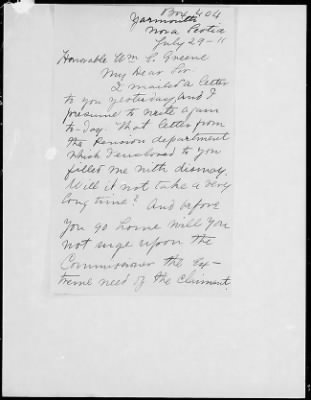 Box 404
Yarmouth
Nova Scotia
July 29-11
Honorable Wm S. Greene
My Dear Sir
I mailed a letter
to you yesterday, and I
presume to write again
to-day. That letter from
the Pension department
which I enclosed to you
filled me with dismay.
Will it not take a very
long time? And before
you go home will you
not urge upon the
Commissioner the Ex-
treme need of the claiment.